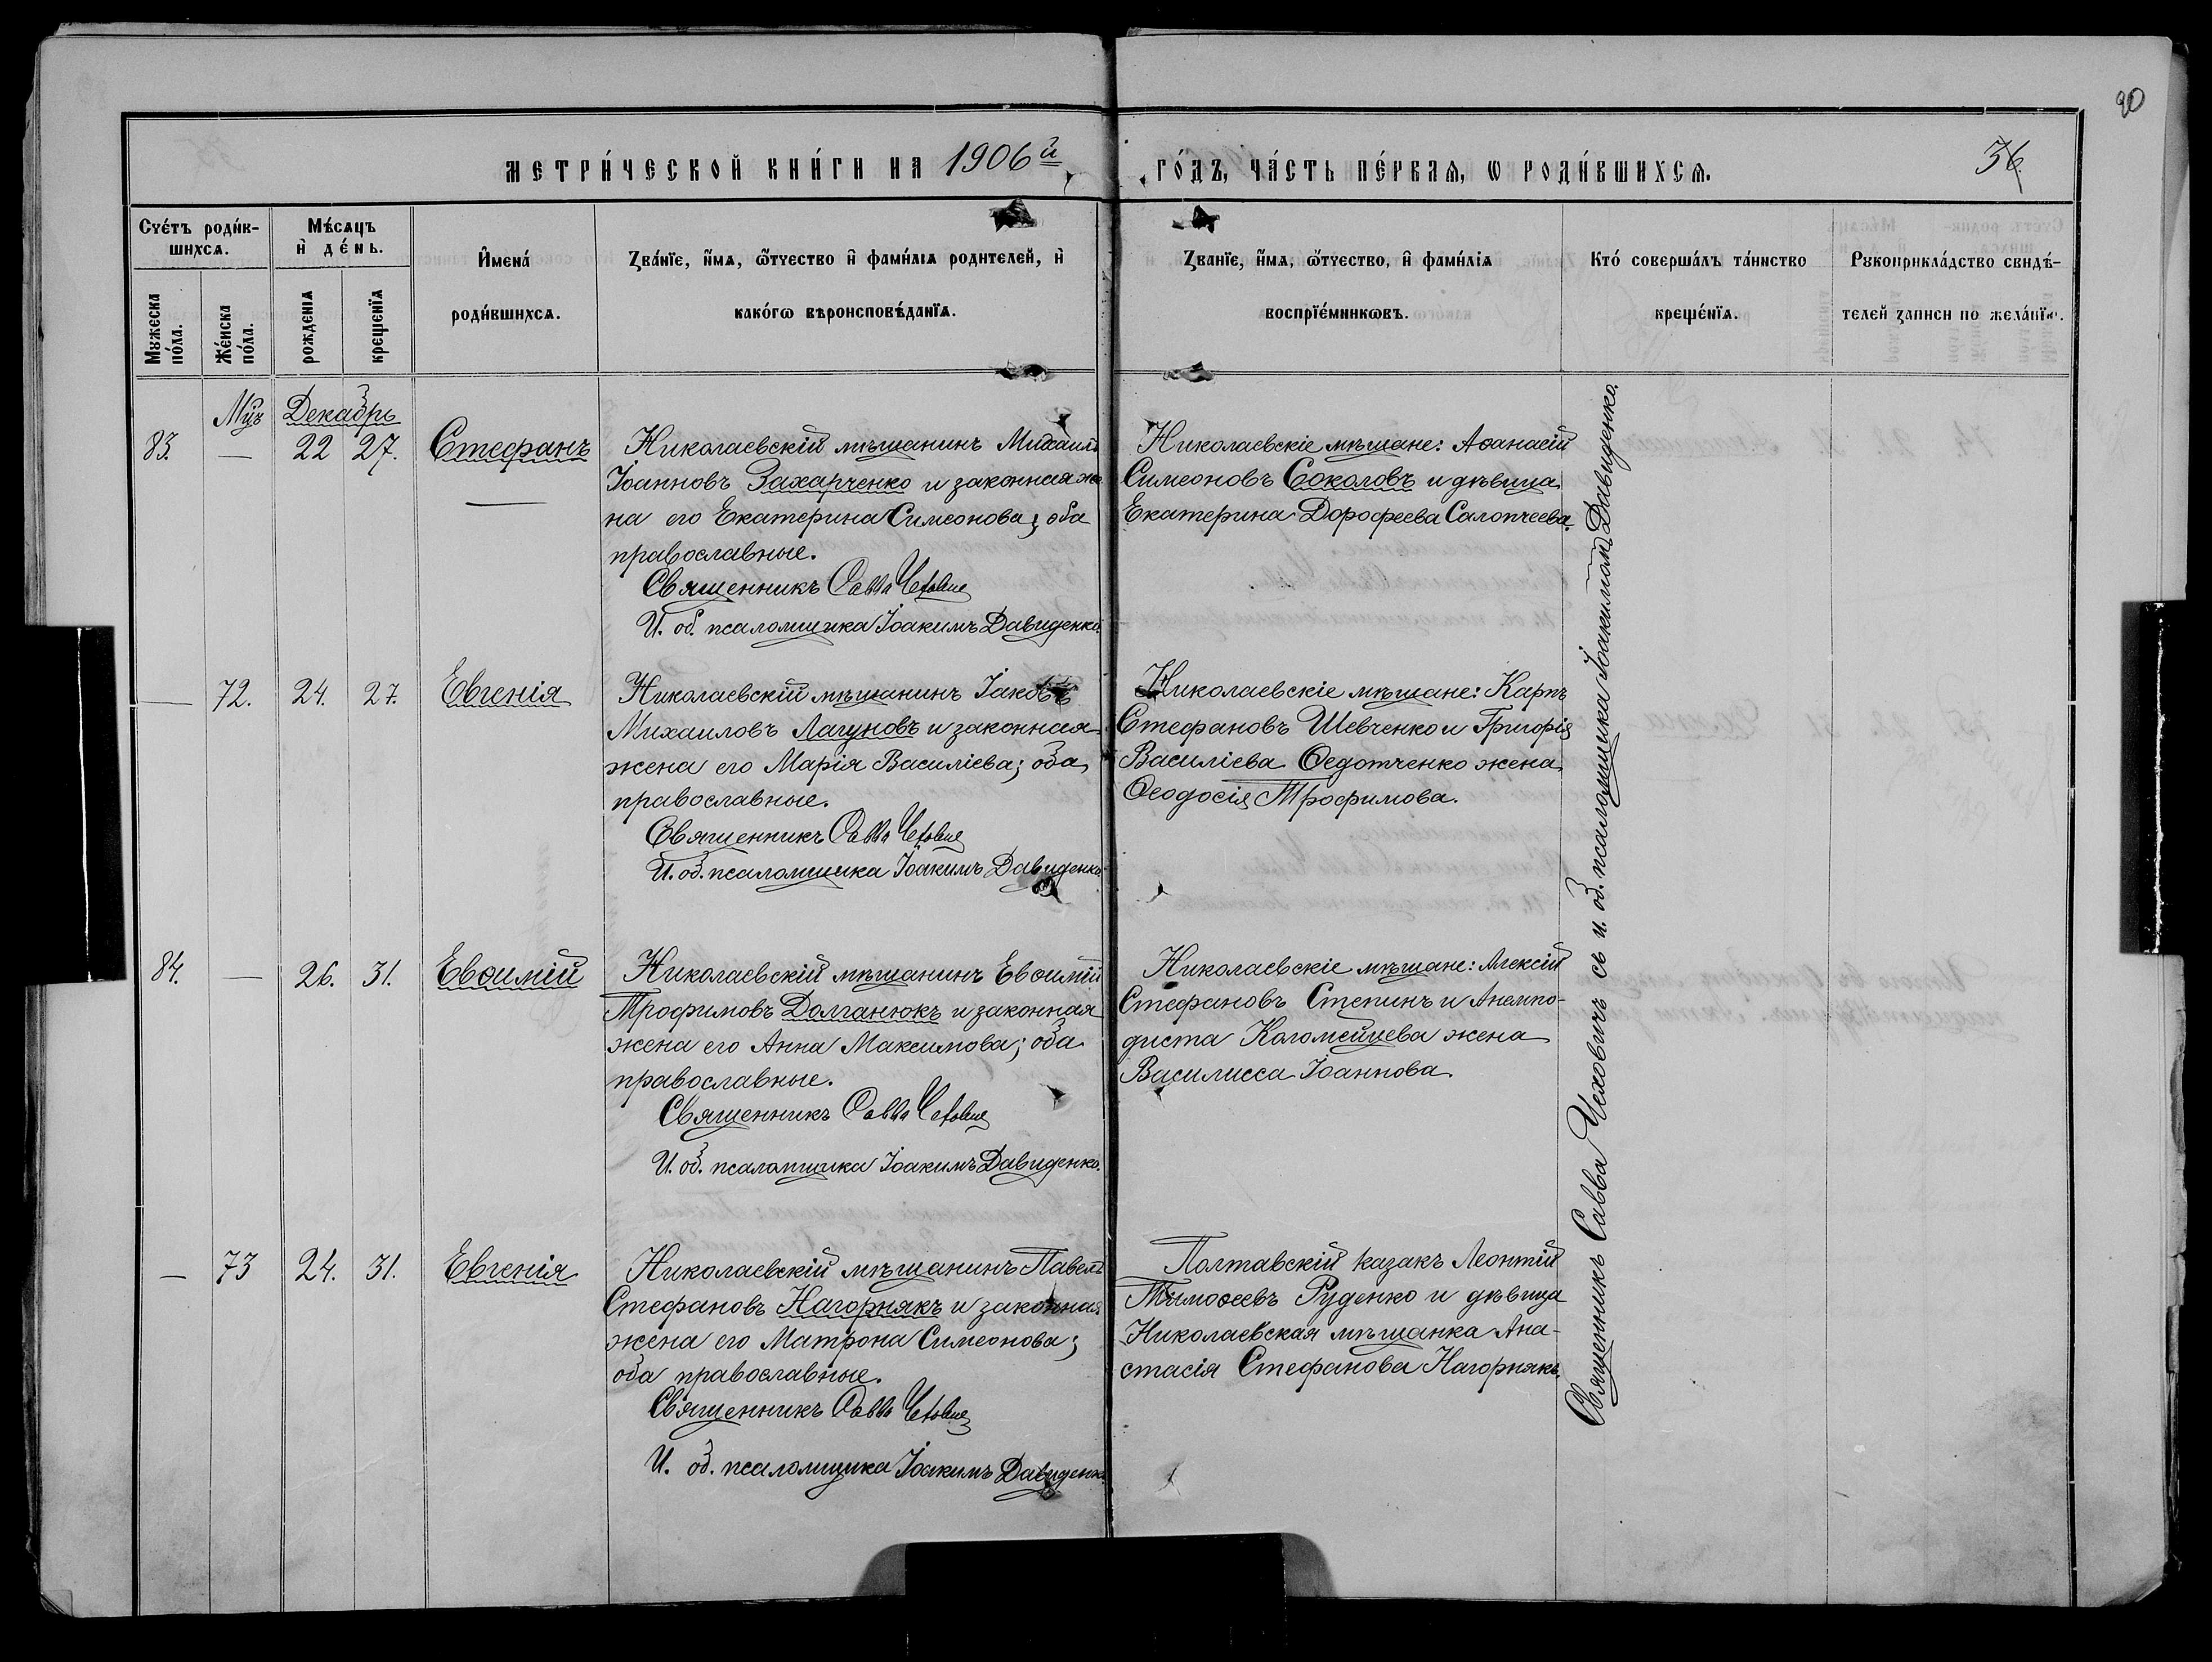 90
МЕТРИ́ЧЕСКОЙ КНИ́ГИ НА 1906й ГО́ДЪ, ЧА́СТЬ ПЕ́РВАЯ, Ѡ РОДИ́ВШИХСѦ.
36
Счéтъ роди́в-
шихсѧ.
Мѣ́сѧцъ
и҆ де́нь.
Мꙋжеска
по́ла.
Же́нска
по́ла.
рожденіѧ
крещенїѧ
И҆мена́
роди́вшихсѧ.
Зва́нїе, и҆́мѧ, ѻ҆́тчество и҆ фами́лїѧ родителей, и҆
како́гѡ вѣроисповѣ́данїѧ.
Зва́нїе, и҆́мѧ, ѻ҆́тчество, и҆ фами́лїѧ
воспрїе́мникѡвъ.
Кто́ соверша́лъ та́инство
креще́нїѧ.
Рꙋкоприкла́дство свидѣ́-
телей записи по жела́нїю.
Декабрь
83. — 22 27. Стефанъ
Николаевскій мѣщанинъ Михаилъ
Іоанновъ Захарченко и законная же-
на его Екатерина Симеонова; оба
православные.
Священникъ Савва Чехович
И. об. псаломщика Іоакимъ Давиденко.
Николаевскіе мѣщане: Аѳанасій
Симеоновъ Соколовъ и дѣвица
Екатерина Дорофеева Салопчеева.
— 72. 24. 27. Евгенія
Николаевскій мѣщанинъ Іаковъ
Михаиловъ Лагуновъ и законная
жена его Марія Василіева; оба
православные.
Священникъ Савва Чехович
И. об. псаломщика Іоакимъ Давиденко.
Николаевскіе мѣщане: Карпъ
Стефановъ Шевченко и Григорія
Василіева Ѳедотченко жена
Ѳеодосія Трофимова.
84. — 26. 31. Евѳимій
Николаевскій мѣщанинъ Евѳимій
Трофимовъ Долганюкъ и законная
жена его Анна Максимова; оба
православные.
Священникъ Савва Чехович
И. об. псаломщика Іоакимъ Давиденко.
Николаевскіе мѣщане: Алексій
Стефановъ Степинъ и Анемпо-
диста Коломейцева жена
Василисса Іоаннова.
— 73 24. 31. Евгенія
Николаевскій мѣщанинъ Павелъ
Стефановъ Нагорнякъ и законная
жена его Матрона Симеонова;
оба православные.
Священникъ Савва Чехович
И. об. псаломщика Іоакимъ Давиденко.
Полтавскій казакъ Леонтій
Тимоѳеевъ Руденко и дѣвица
Николаевская мѣщанка Ана-
стасія Стефанова Нагорнякъ.
Священникъ Савва Чеховичъ съ и. об. псаломщика Іоакимомъ Давиденко.